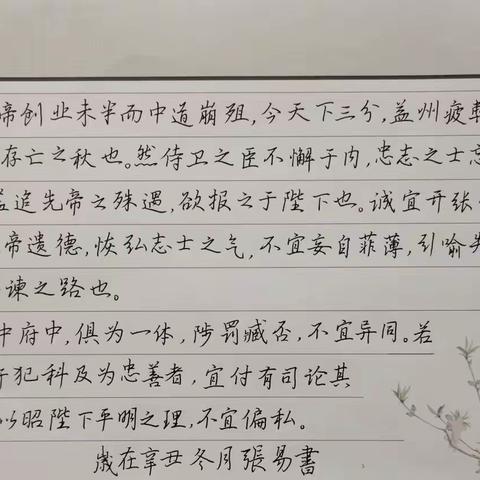 帝创业未半而中道崩殂,今天下三分,益州疲
存亡之秋也。然侍卫之臣不懈于内,忠志之士忘
盖追先帝之殊遇,欲报之于陛下也。诚宜开张
帝遗德,恢弘志士之气,不宜妄自菲薄,引喻失
谏之路也。
中府中,俱为一体,陟罚臧否,不宜异同。若
犯科及为忠善者,宜付有司论其
以昭陛下平明之理,不宜偏私。
歲在辛丑冬月張易書